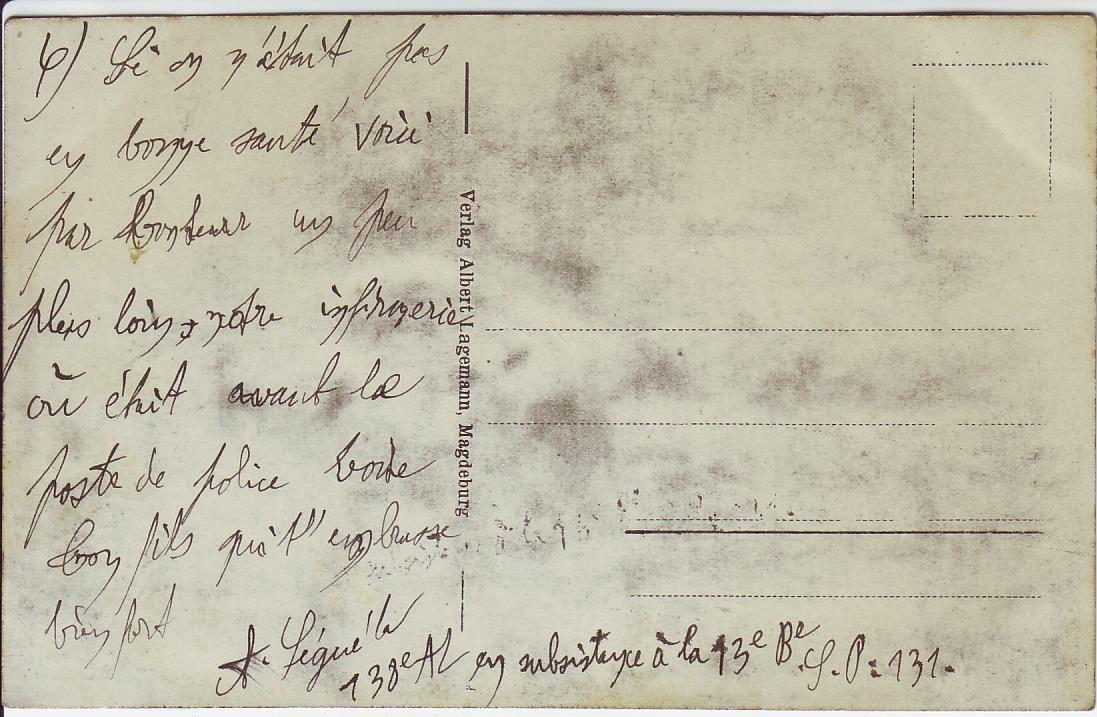 4) Si on n'était pas
en bonne santé voici
par bonheur un peu
plus loin, notre infirmerie
où était avant le
poste de police
bon fils qui t'embrasse
bien fort
A. Séguéla
138e AL en subsistance à la 13e Be S.P: 131.
Verlag Albert Lagemann, Magdeburg